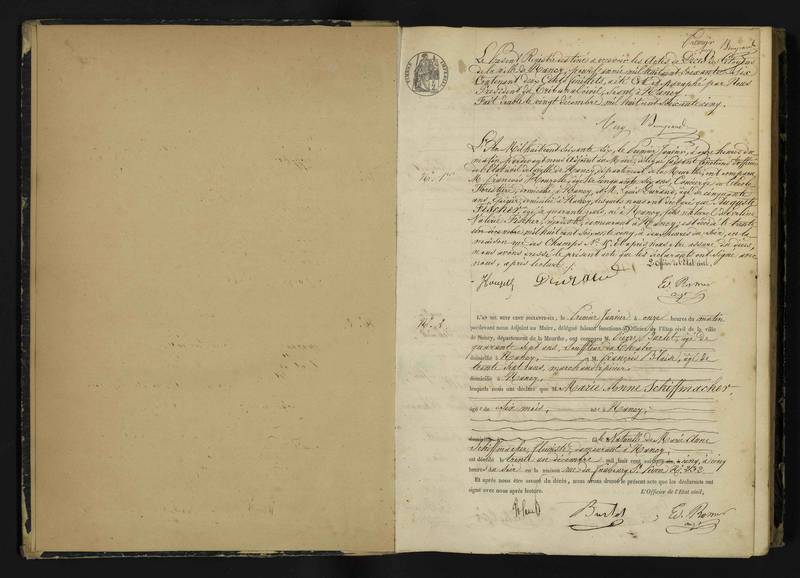 Le Présent Registre destiné à recevoir les Actes de Décès des Citoyens
de la ville de Nancy, pendant l'année mil huit cent soixante-six
Contenant deux Cents feuillets, a été Coté et paraphé par Nous
Président du Tribunal civil, séant à Nancy
Fait double le vingt décembre mil huit cent soixante cinq.
N° 1er
L'An Mil huit cent soixante six, le Premier Janvier, à onze heures du
matin, pardevant nous Adjoint au Maire, délégué faisant fonctions d'officier
de l'Etat civil de la ville de Nancy, département de la Meurthe, ont comparu
M. François Houzelle, âgé de cinquante six ans, Concierge à l'école
Forestière, domicilié à Nancy, et M. Louis Durand, âgé de cinquante
ans, domicilié à Nancy, lesquels nous ont déclaré que Auguste
Fischer, âgé de quarante ans, né à Nancy, fils naturel de
Fischer, demeurant à Nancy, est décédé le trente
un décembre mil huit cent soixante cinq, à heures du soir, en la
maison rue des Champs N° Et après nous être assuré du décès,
nous avons dressé le présent acte que les déclarants ont signé avec
nous, après lecture. L'Officier de l'Etat civil,
Durand
N° 2.
L'AN MIL HUIT CENT SOIXANTE-SIX, le Premier Janvier à onze heures du matin
pardevant nous Adjoint au Maire, délégué faisant fonctions d'Officier de l'Etat civil de la ville
de Nancy, département de la Meurthe, ont comparu M. âgé de
quarante sept ans, Souffleur au Théâtre
domicilié à Nancy, et M. François Blaise, âgé de
trente sept ans, marchand épicier
domicilié à Nancy,
lesquels nous ont déclaré que Marie Anne Schiffmacher,
âgé de six mois, né à Nancy,
domicilié fille Naturelle de Marie Anne
Schiffmacher, fleuriste, demeurant à Nancy,
est décédé le trente un décembre mil huit cent soixante cinq, à cinq
heures du soir en la maison rue du faubourg St Pierre N°
Et après nous être assuré du décès, nous avons dressé le présent acte que les déclarants ont
signé avec nous après lecture. L'Officier de l'Etat civil,